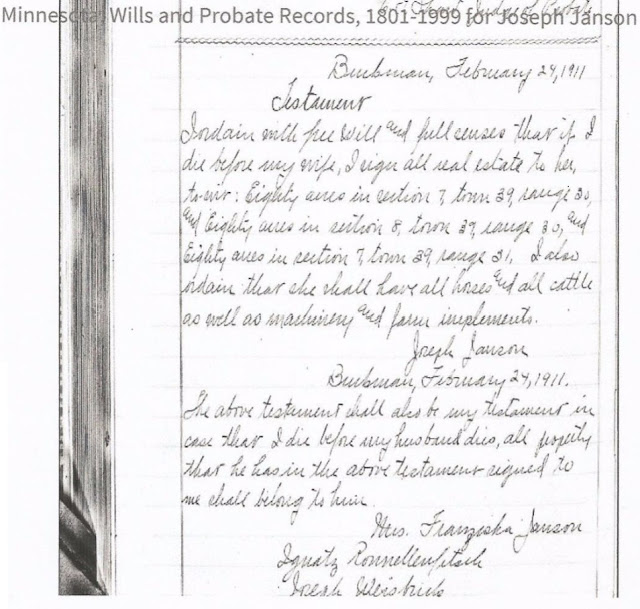 Minnesota, Wills and Probate Records, 1801-1999 for Joseph Janson
Judge of Probate
Buckman, February 24, 1911
Testament
I ordain with free Will and full senses that if I
die before my wife, I sign all real estate to her,
to-wit: Eighty acres in section 7, town 39, range 30,
and Eighty acres in section 8, town 39, range 30, and
Eighty acres in section 7, town 39, range 31. I also
ordain that she shall have all horses and all cattle
as well as machinery and farm implements.
Joseph Janson
Buckman, February 24, 1911.
The above testament shall also be my testament in
case that I die before my husband dies, all property
that he has in the above testament signed to
me shall belong to him.
Mrs. Franziska Janson
Ignatz Ronnellenfitsch
Joseph Weisbrich